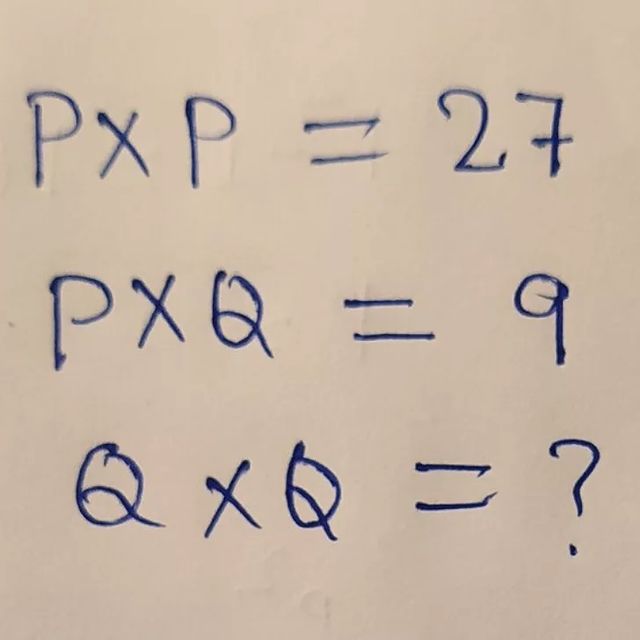 P × P = 27
P × Q = 9
Q × Q = ?